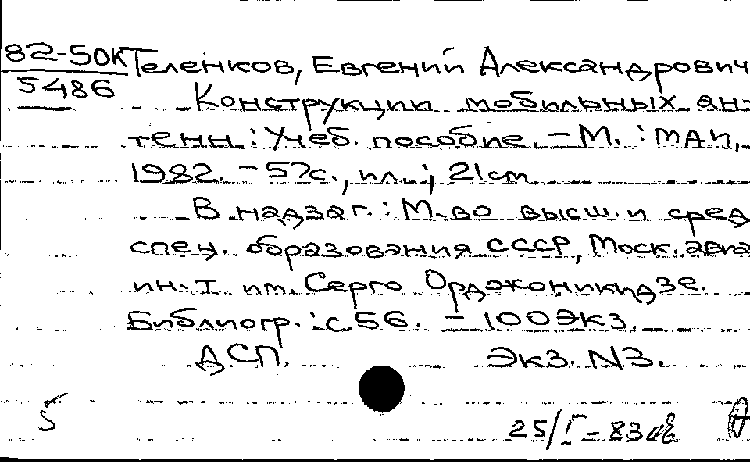 82-50К Теленков, Евгений Александрович
5486
Конструкции мобильных ан-
тенн: Учеб. пособие. - М. : МАИ,
1982. - 57с., ил.; 21см
В надзаг.: М-во высш. и сред
спец. образования СССР, Моск. авиа
ин-т им. Серго Орджоникидзе.
Библиогр.: с 56. - 100экз.
ДСП. Экз. N3.
5
25/I-83